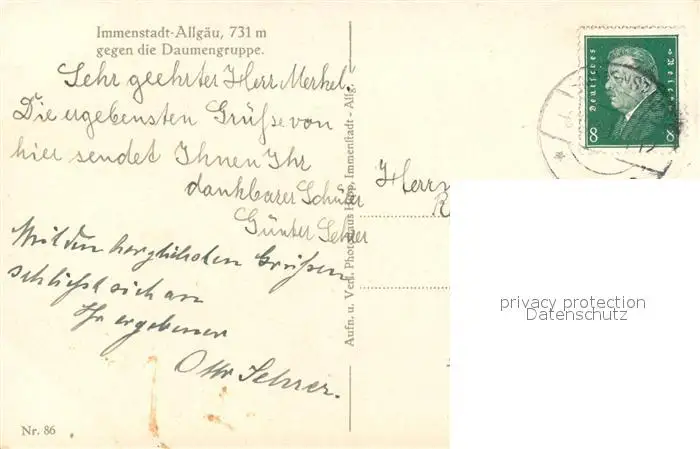 Immenstadt-Allgäu, 731 m
gegen die Daumengruppe.
Sehr geehrter Herr Merkel.
Die ergebensten Grüße von
hier sendet Ihnen Ihr
dankbarer Schüler
Günter Sehrer
Mit den herzlichsten Grüßen
schließt sich an
Ihr ergebener
Otto Sehrer.
Nr. 86
Aufn. u. Verl. Photohaus Hipp, Immenstadt - Allg.
Deutsches Reich
8 8
Herrn
privacy protection
Datenschutz